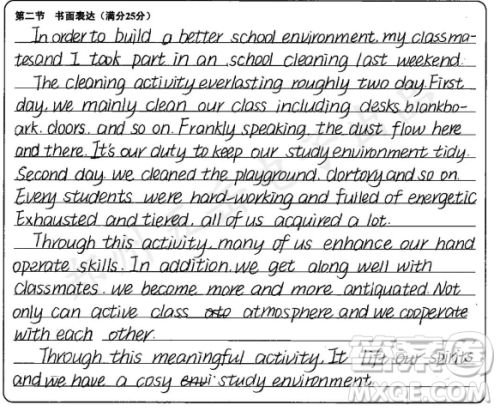 第二节 书面表达（满分25分）
In order to build a better school environment, my classma-
tes and I took part in an school cleaning last weekend.
The cleaning activity everlasting roughly two day. First
day, we mainly clean our class including desks blankbo-
ark. doors. and so on. Frankly speaking, the dust flow here
and there. It's our duty to keep our study environment tidy.
Second day we cleaned the playground. dortory and so on.
Every students were hard-working and fulled of energetic
Exhausted and tiered, all of us acquired a lot.
Through this activity, many of us enhance our hand
operate skills. In addition, we get along well with
classmates. we become more and more antiquated. Not
only can active class atmosphere and we cooperate
with each other.
Through this meaningful activity, It lift our spirits
and we have a cosy study environment.
答案圈
MXQE.COM